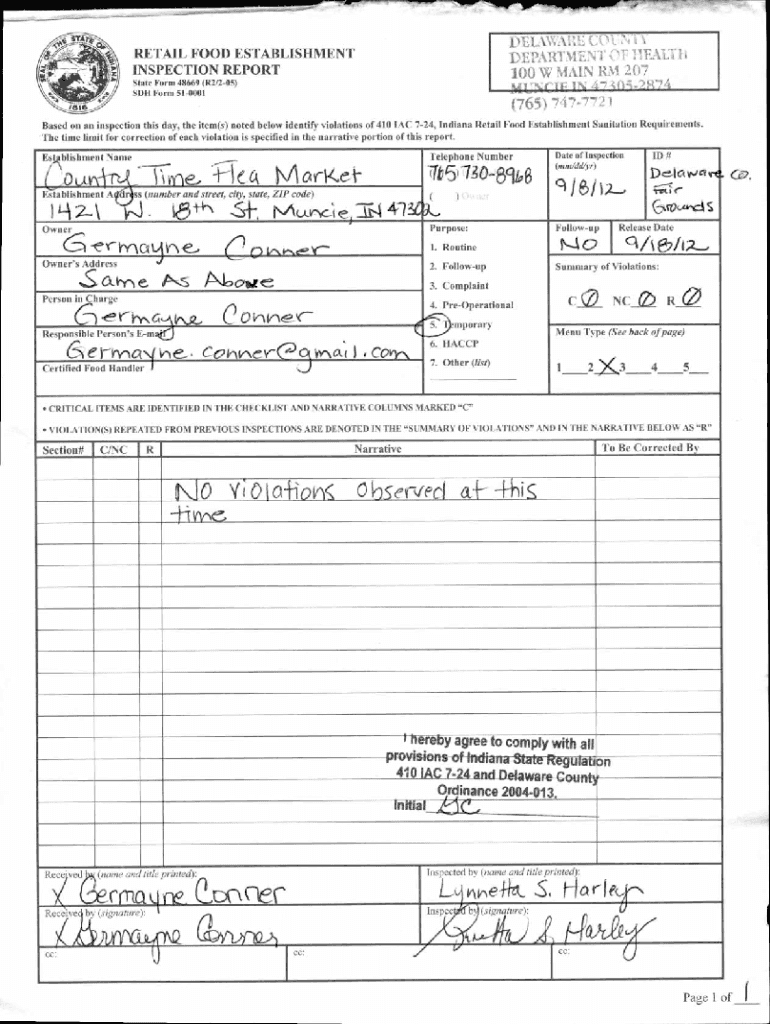 RETAIL FOOD ESTABLISHMENT
INSPECTION REPORT
State Form 48669 (R2/2-05)
SDH Form 51-0001
DELAWARE COUNTY
DEPARTMENT OF HEALTH
100 W MAIN RM 207
MUNCIE IN 47305-2874
(765) 747-7721
Based on an inspection this day, the item(s) noted below identify violations of 410 IAC 7-24, Indiana Retail Food Establishment Sanitation Requirements.
The time limit for correction of each violation is specified in the narrative portion of this report.
Establishment Name
Country Time Flea Market
Telephone Number
765 730-8968
Date of Inspection
(mm/dd/yr)
9/8/12
ID #
Delaware Co.
Fair
Grounds
Establishment Address (number and street, city, state, ZIP code)
1421 W. 18th St. Muncie, IN 47302
( ) Owner
Owner
Germayne Conner
Owner's Address
Same As Above
Person in Charge
Germayne Conner
Responsible Person's E-mail
Germayne.conner@gmail.com
Certified Food Handler
Purpose:
1. Routine
2. Follow-up
3. Complaint
4. Pre-Operational
5. Temporary
6. HACCP
7. Other (list)
Follow-up
NO
Release Date
9/18/12
Summary of Violations:
C Ø NC Ø R Ø
Menu Type (See back of page)
1 2 X 3 4 5
• CRITICAL ITEMS ARE IDENTIFIED IN THE CHECKLIST AND NARRATIVE COLUMNS MARKED "C"
• VIOLATION(S) REPEATED FROM PREVIOUS INSPECTIONS ARE DENOTED IN THE "SUMMARY OF VIOLATIONS" AND IN THE NARRATIVE BELOW AS "R"
Section# C/NC R Narrative To Be Corrected By
No violations observed at this
time
I hereby agree to comply with all
provisions of Indiana State Regulation
410 IAC 7-24 and Delaware County
Ordinance 2004-013.
Initial GC
Received by (name and title printed):
X Germayne Conner
Inspected by (name and title printed):
Lynnetta S. Harley
Received by (signature):
X Germayne Conner
Inspected by (signature):
Lynnetta S. Harley
cc: cc: cc:
Page 1 of 1